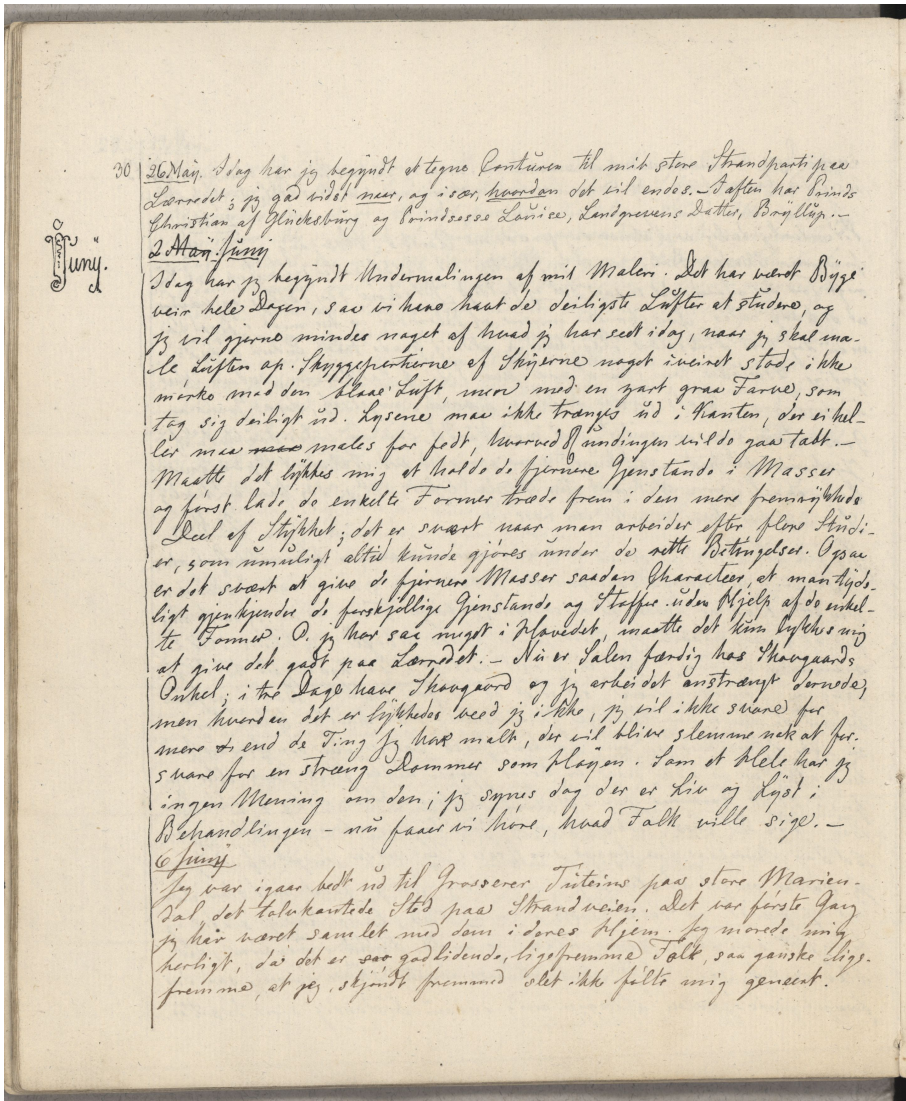 30 26 Maÿ. Idag har jeg begÿndt at tegne Conturen til mit store Strandparti paa
Lærredet; jeg gad vidst naar, og især, hvordan det vil endes. – Iaften har Prinds
Christian af Glücksburg og Prindsesse Louise, Landgrevens Datter, Brÿllup. –
Junÿ.
2 Maÿ. Junÿ
Idag har jeg begÿndt Undermalingen af mit Maleri. Det har været Bÿge
veir hele Dagen, saa vi have havt de deiligste Lufter at studere, og
jeg vil gjerne mindes noget af hvad jeg har seet idag, naar jeg skal ma-
le Luften op. Skyggepartierne af Skÿerne noget iveiret stode ikke
mørke mod den blaae Luft, men med en zart graa Farve, som
tog sig deiligt ud. Lysene maa ikke trænges ud i Kanten, der ei hel-
ler maa maa males for fedt, hvorved Rundingen vilde gaa tabt. –
Maatte det lÿkkes mig at holde de fjernere Gjenstande i Masser
og først lade de enkelte Former træde frem i den mere fremrÿkkede
Deel af Stÿkket; det er svært naar man arbeider efter flere Studi-
er, som umuligt altid kunde gjøres under de rette Betingelser. Ogsaa
er det svært at give de fjernere Masser saadan Characteer, at man tÿde-
ligt gjenkjender de forskjellige Gjenstande og Stoffer uden Hjelp af de enkel-
te Former. O, jeg har saa meget i Hovedet, maatte det kun lykkes mig
at give det godt paa Lærredet. – Nu er Salen færdig hos Skovgaards
Onkel; i tre Dage have Skovgaard og jeg arbeidet anstrængt dernede,
men hvordan det er lÿkkedes veed jeg ikke, jeg vil ikke svare for
mere end de Ting jeg har malt, der vil blive slemme nok at for-
svare for en stræng Dommer som Høÿen. Som et Hele har jeg
ingen Mening om den; jeg synes dog der er Liv og Lÿst i
Behandlingen – nu faaer vi høre, hvad Folk ville sige. –
6 Junÿ
Jeg var igaar bedt ud til Grosserer Tuteins paa store Marien-
dal, det tolvkantede Sted paa Strandveien. Det var første Gang
jeg har været samlet med dem i deres Hjem. Jeg morede mig
herligt, da det er saa godlidende, ligefremme Folk, saa ganske lige-
fremme, at jeg, skjøndt fremmed slet ikke følte mig geneert.